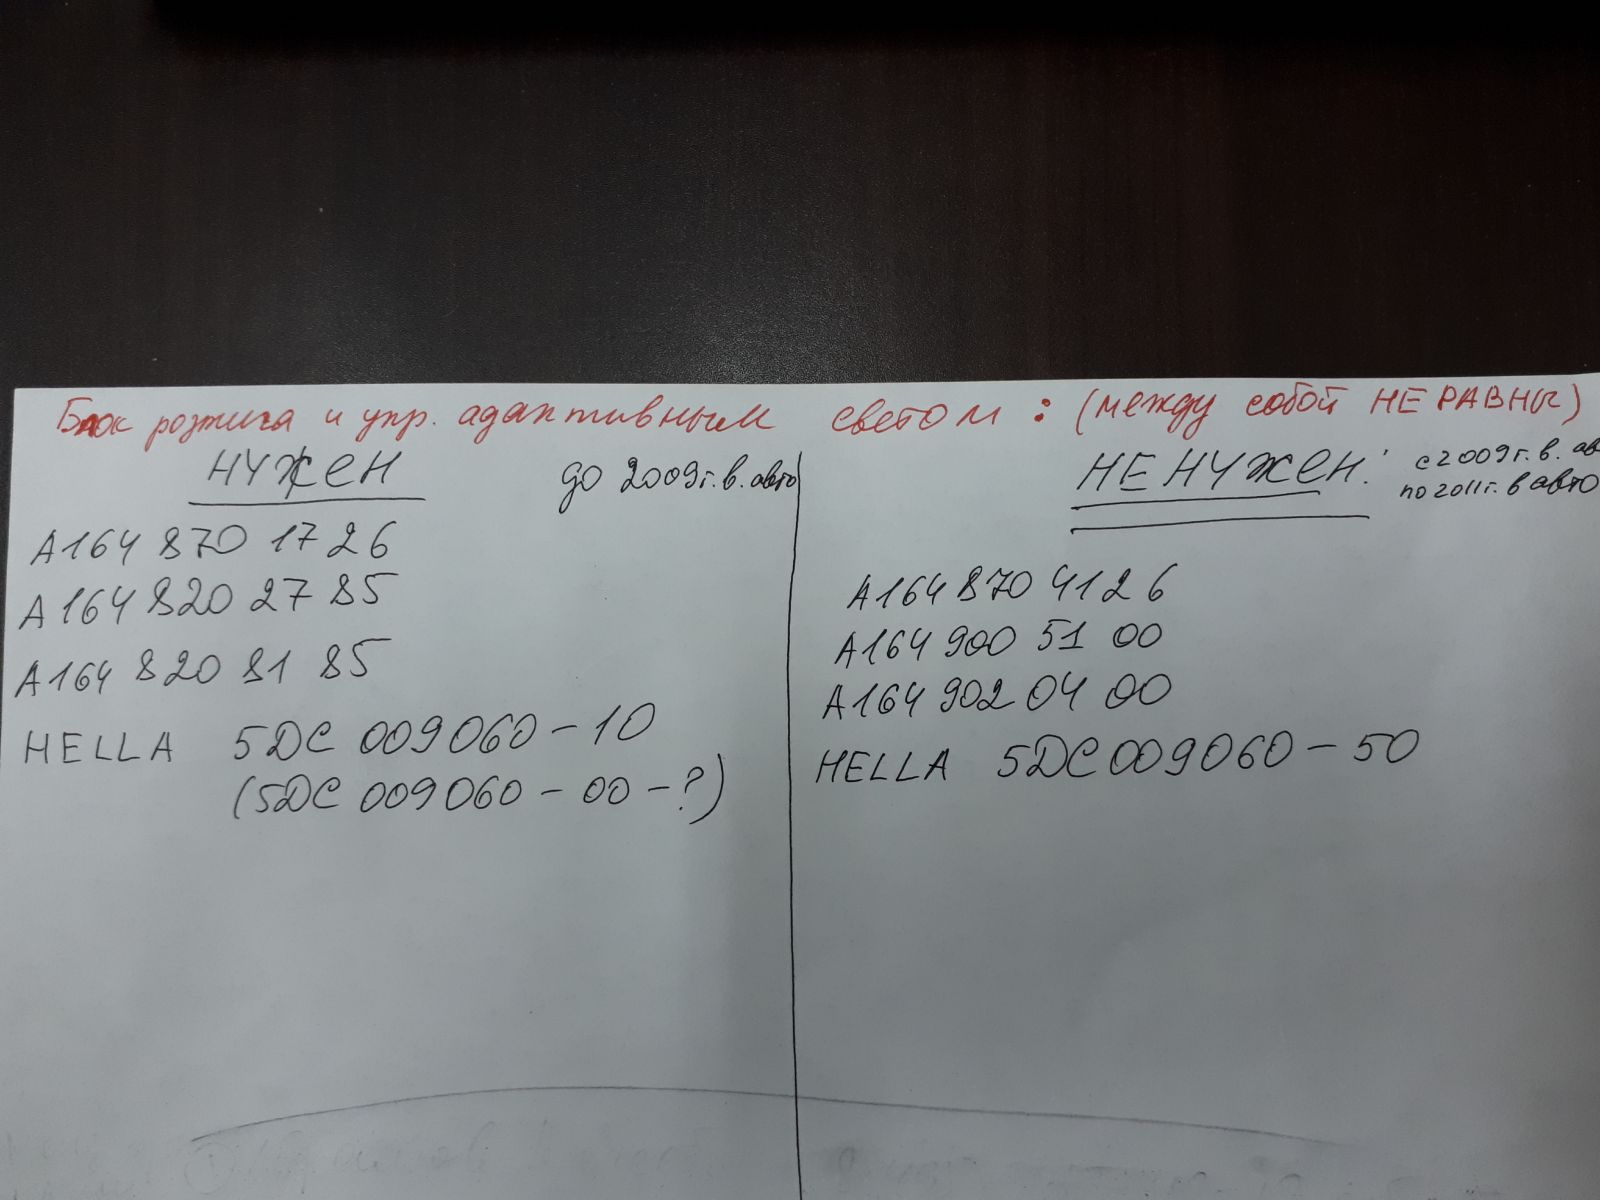 Блок розжига и упр. адаптивным светом: (между собой НЕ РАВНЫ)
НУЖЕН до 2009г. в. авто
A164 870 17 26
A164 820 27 85
A164 820 81 85
HELLA 5DC 009060-10
(5DC 009060-00-?)
НЕ НУЖЕН! с 2009г. в. ав
по 2011г. в авто
A164 870 41 26
A164 900 51 00
A164 902 04 00
HELLA 5DC 009060-50